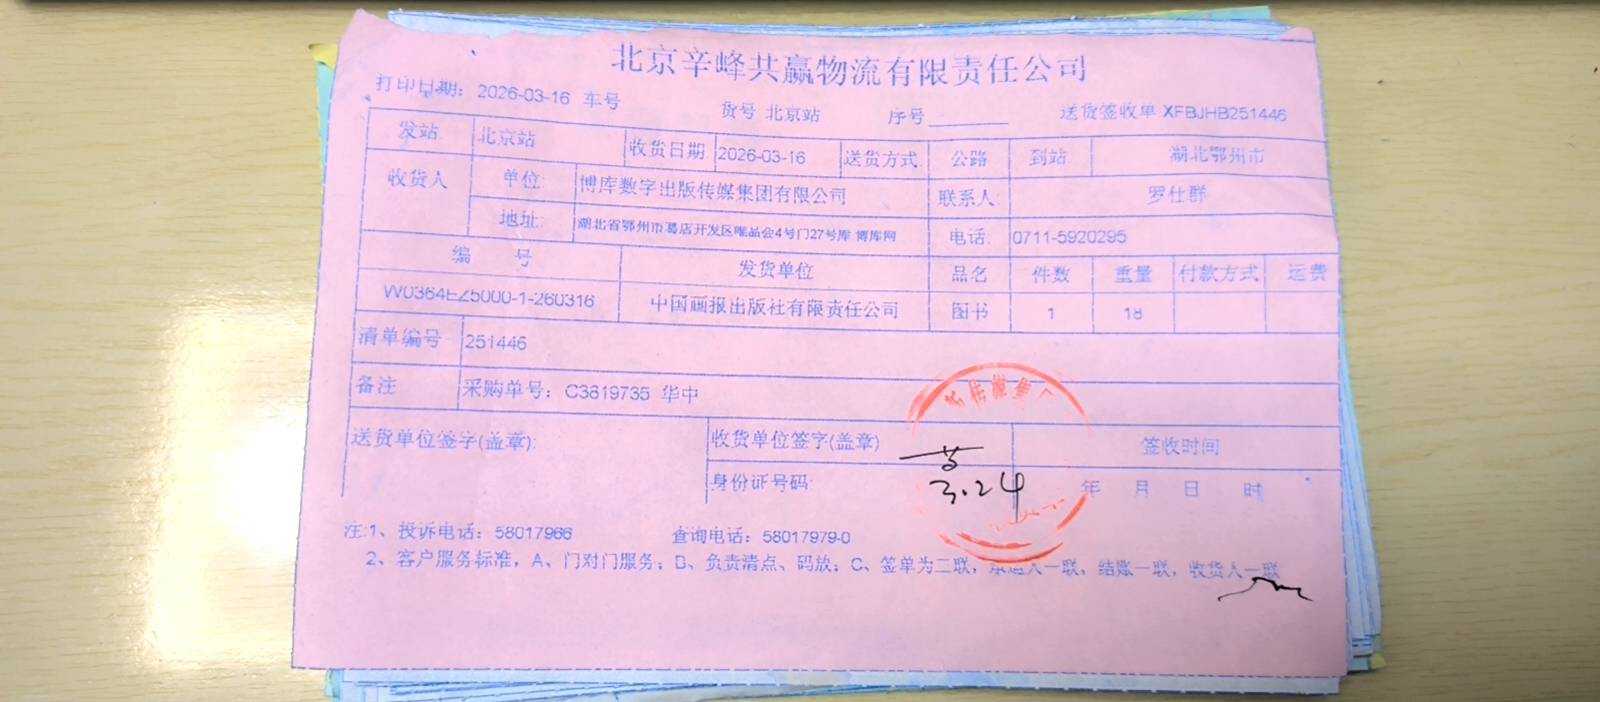 北京辛峰共赢物流有限责任公司
打印日期: 2026-03-16 车号 货号 北京站 序号 送货签收单 XFBJHB251446
发站 北京站 收货日期 2026-03-16 送货方式 公路 到站 湖北鄂州市
收货人 单位: 博库数字出版传媒集团有限公司 联系人: 罗仕群
地址: 湖北省鄂州市葛店开发区唯品会4号门27号库 博库网 电话: 0711-5920295
编 号 发货单位 品名 件数 重量 付款方式 运费
W0364EZ5000-1-260316 中国画报出版社有限责任公司 图书 1 18
清单编号 251446
备注 采购单号: C3819735 华中
送货单位签字(盖章): 收货单位签字(盖章) 签收时间
身份证号码: 3.24 年 月 日 时
传媒集
注:1、投诉电话: 58017966 查询电话: 58017979-0
2、客户服务标准, A、门对门服务; B、负责清点、码放; C、签单为三联, 承运人一联, 结账一联, 收货人一联